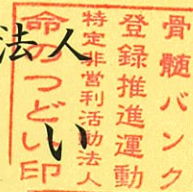 骨髄バンク
登録推進運動
特定非営利活動法人
命のつどい印
法人
い